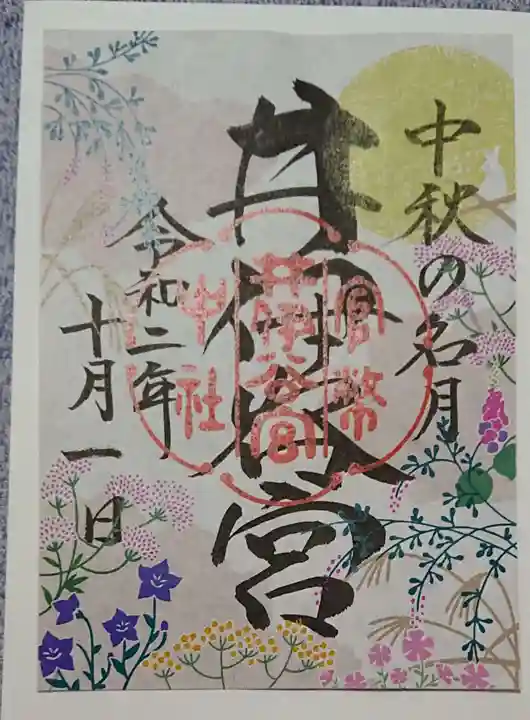 中秋の名月
井伊谷宮
令和二年
十月一日
官幣
井伊谷宮
中社